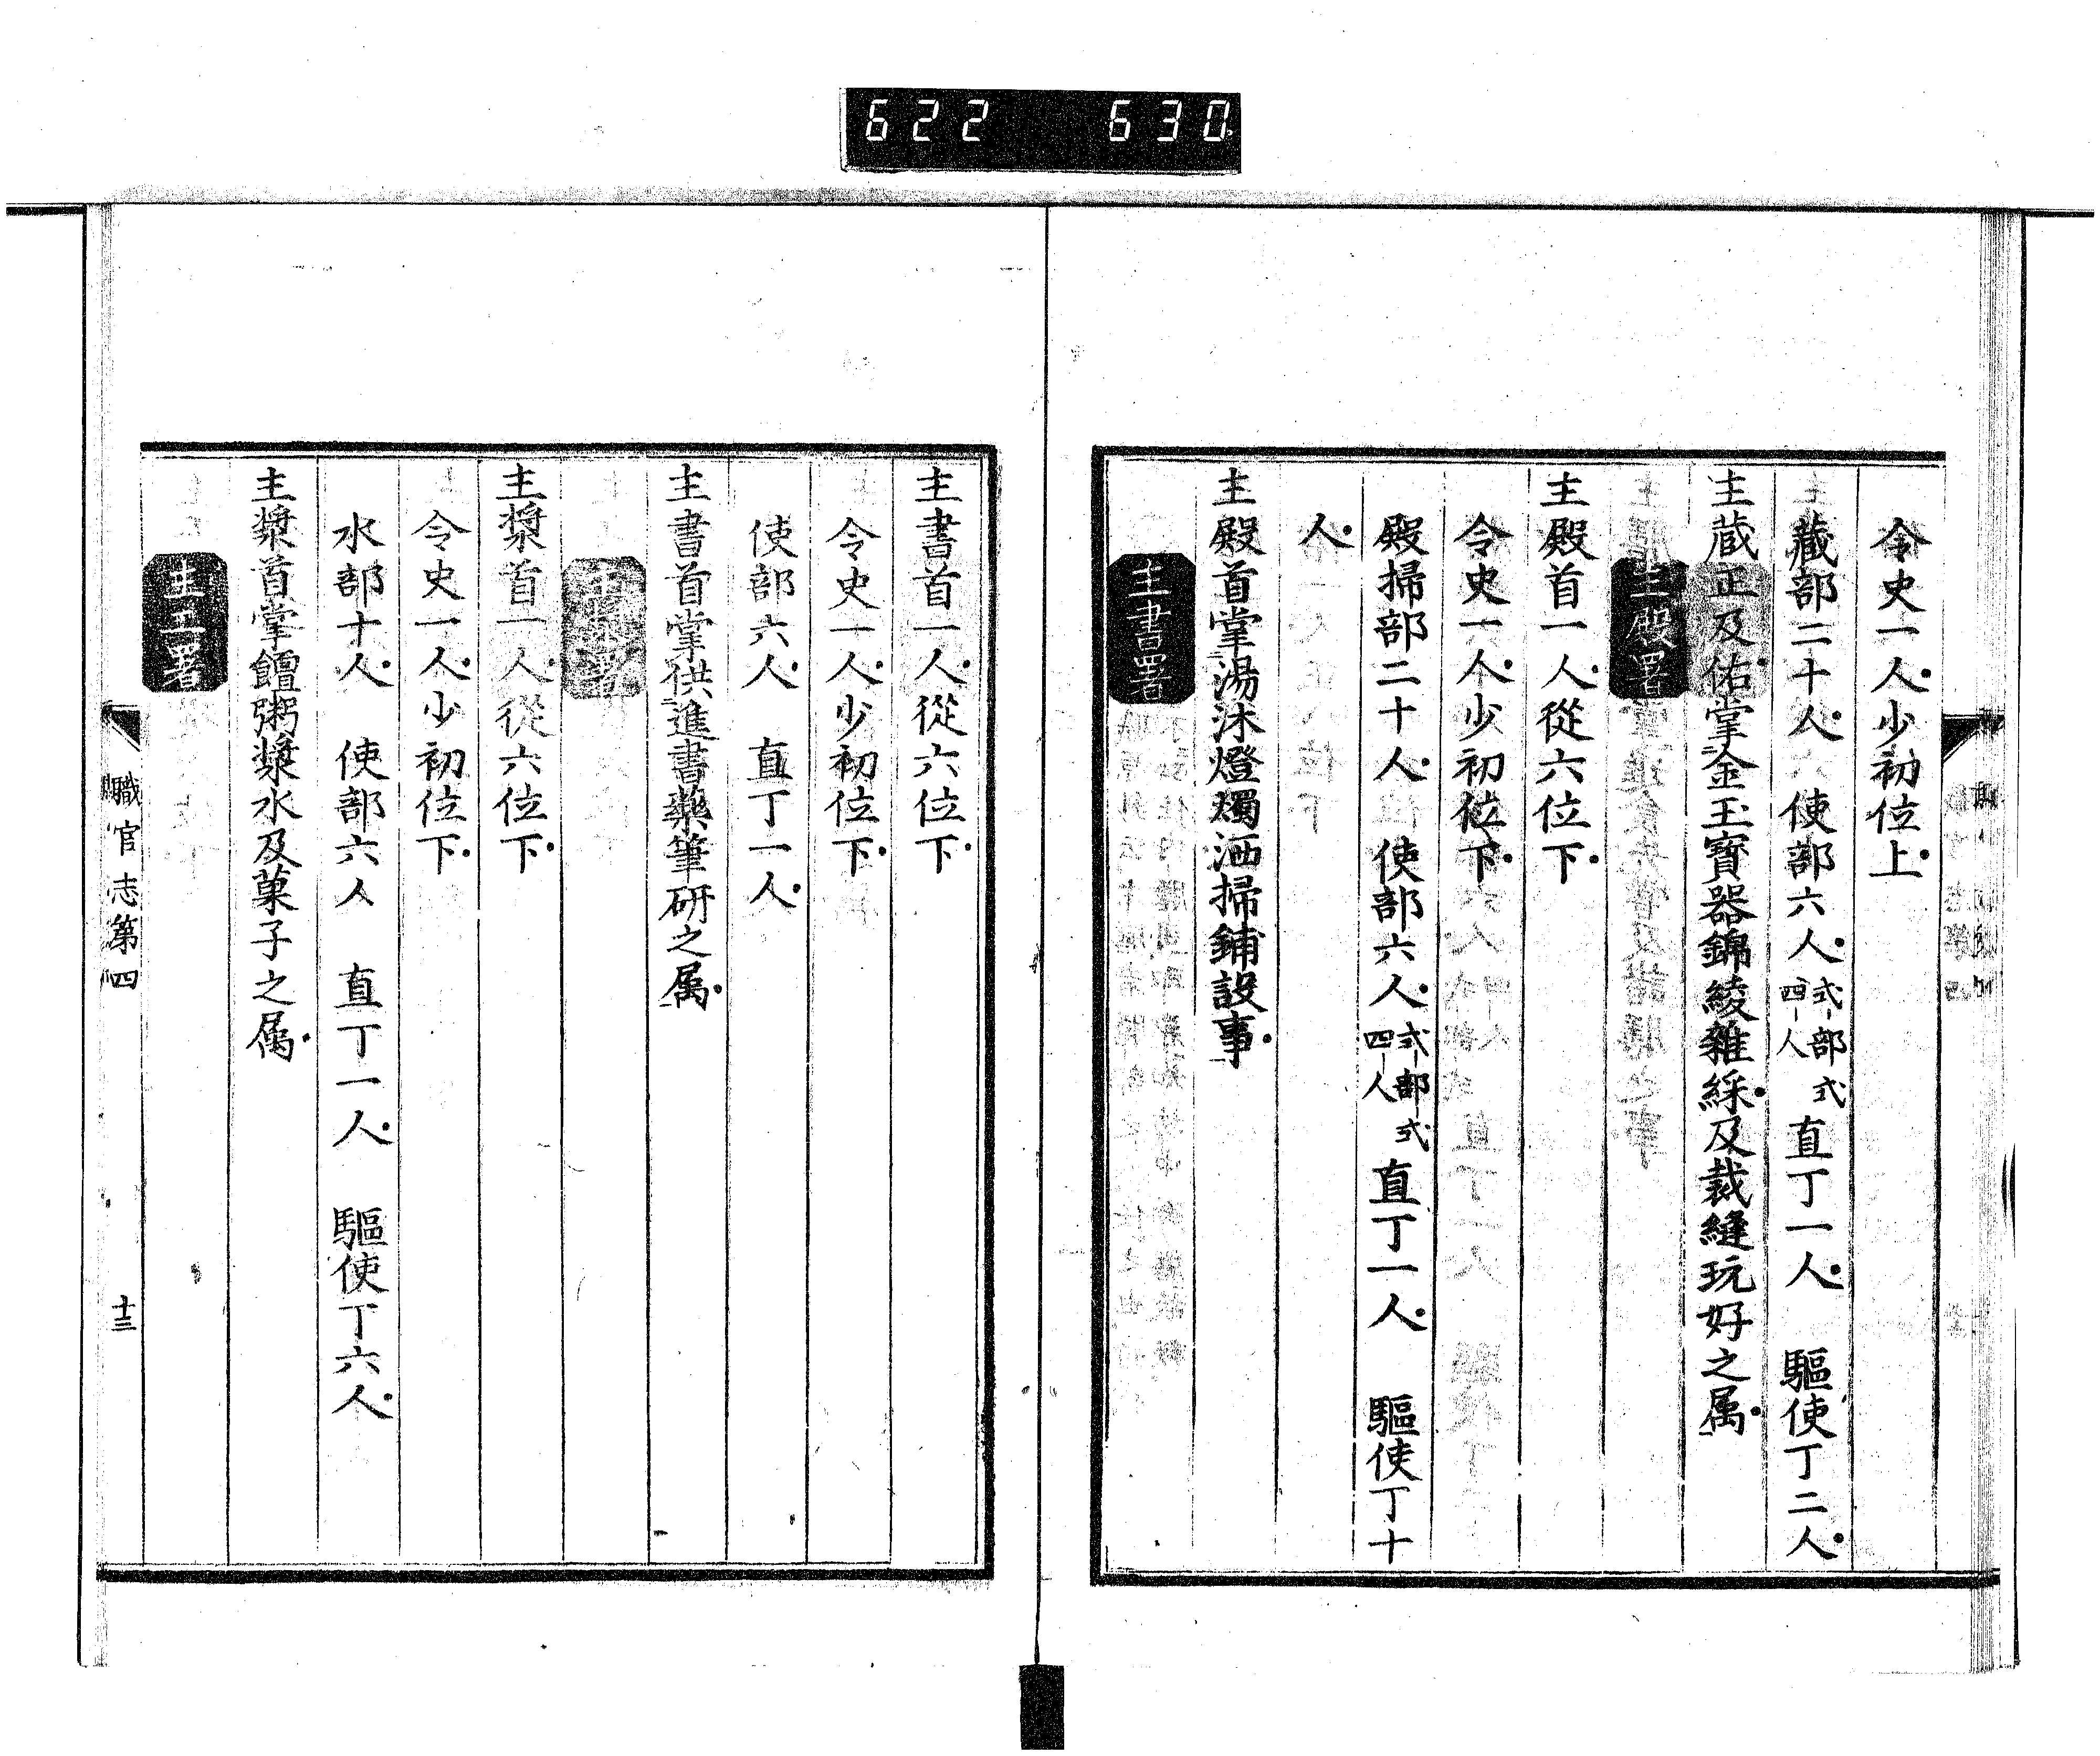 622 630
令史一人少初位上
藏部二十人 使部六人 式部式四人 直丁一人 驅使丁二人
主蔵正及佑掌金玉寶器錦綾雜綵及裁縫玩好之属
主殿署
主殿首一人從六位下
令史一人少初位下
殿掃部二十人 使部六人 式部式四人 直丁一人 驅使丁十
人
主殿首掌湯沐燈燭洒掃鋪設事
主書署
主書首一人從六位下
令史一人少初位下
使部六人 直丁一人
主書首掌供進書藥筆研之属
主漿署
主漿首一人從六位下
令史一人少初位下
水部十人 使部六人 直丁一人 驅使丁六人
主漿首掌饘粥漿水及菓子之属
主工署
職官志第四
十三